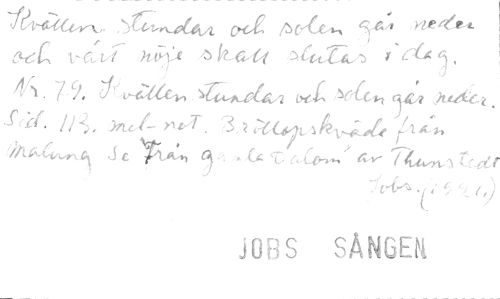 Kvällen stundar och solen går neder
och vårt nöje skall slutas i dag.
Nr. 79. Kvällen stundar och solen går neder.
Sid. 113. mel-not. Bröllopskväde från
Malung Se "Från gamla av Thunstedt
Jobs.
JOBS SÅNGEN